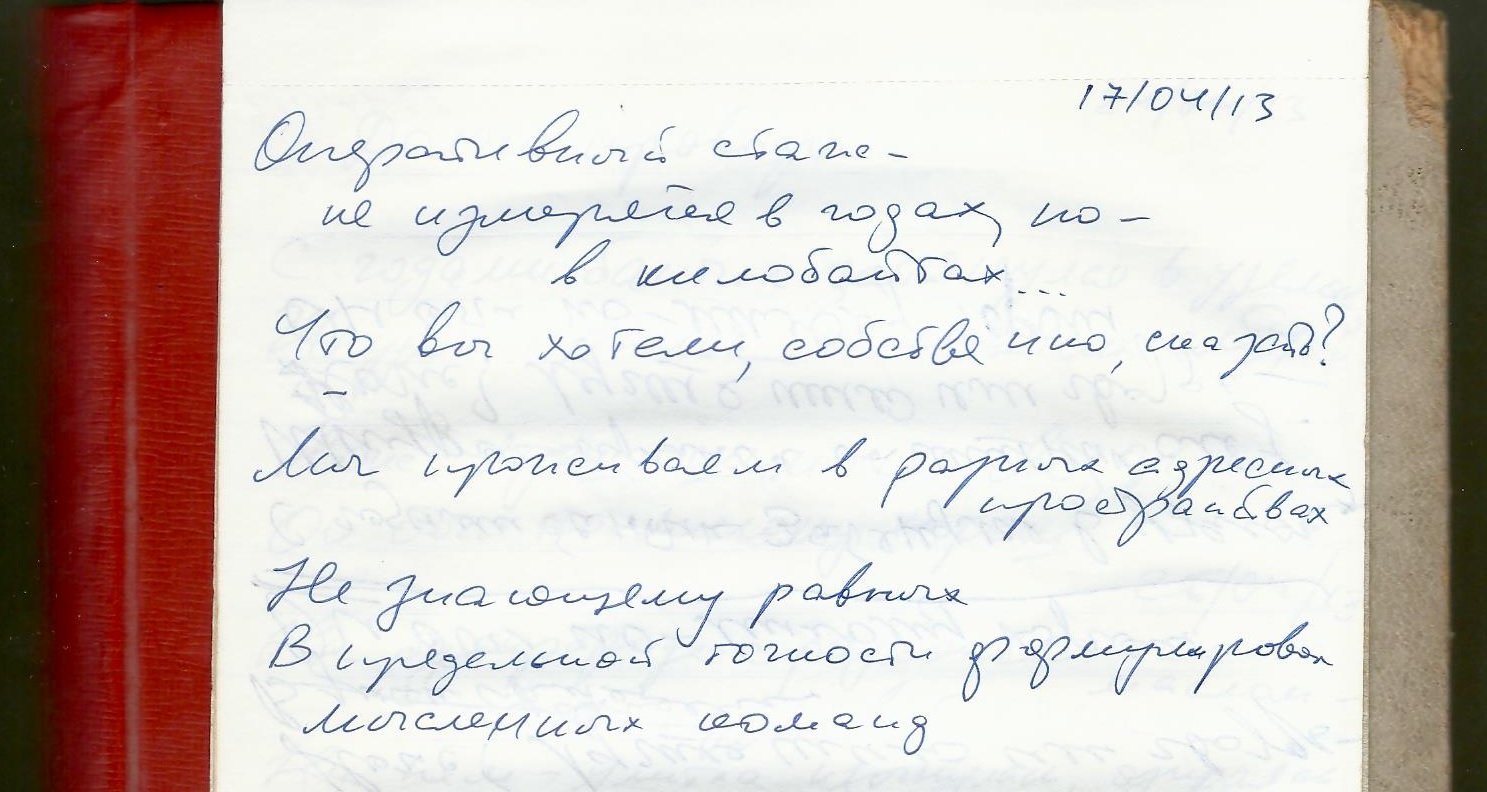 17/04/13
Оперативный стаж –
не измеряется в годах, но –
в килобайтах...
Что вы хотели, собственно, сказать?
–
Мы проживаем в разных адресных
пространствах
Не знающему равных
В предельной точности формулировок
мысленных команд